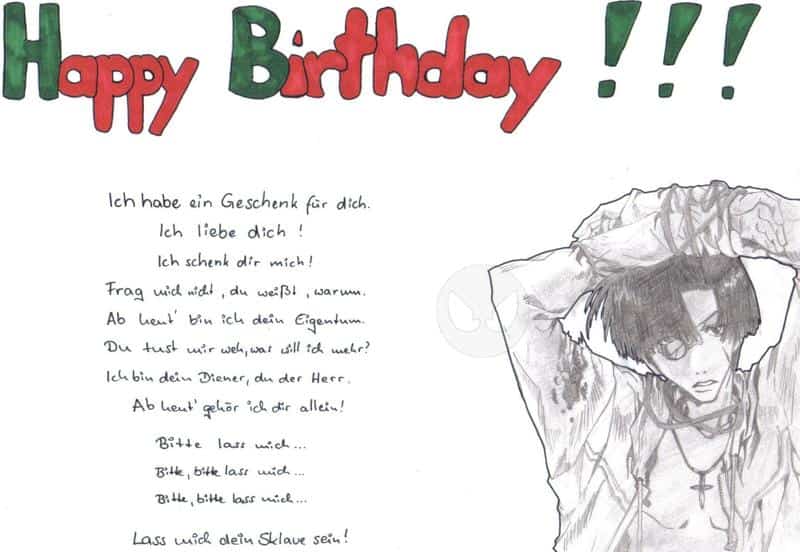 Happy Birthday !!!
Ich habe ein Geschenk für dich.
Ich liebe dich !
Ich schenk dir mich!
Frag mich nicht, du weißt, warum.
Ab heut' bin ich dein Eigentum.
Du tust mir weh, was will ich mehr?
Ich bin dein Diener, du der Herr.
Ab heut' gehör ich dir allein!
Bitte lass mich...
Bitte, bitte lass mich...
Bitte, bitte lass mich...
Lass mich dein Sklave sein!